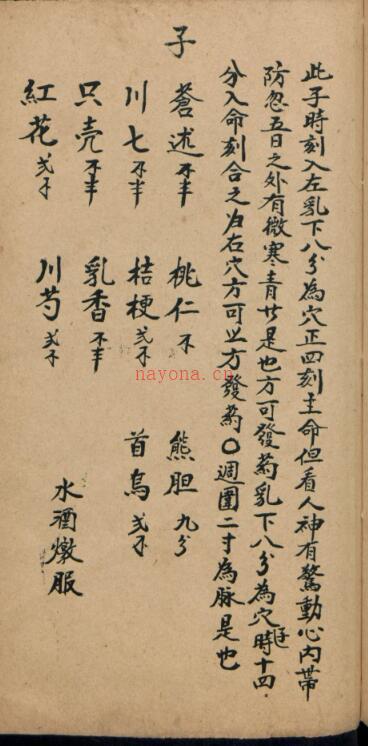 此子時刻入左乳下八分為穴正四刻主命但看人神有驚動心内帶
防忽五日之外有微寒青廿是也方可發药乳下八分為穴時十四
分入命刻合之右穴方可止方發药〇週圍二寸為脉是也
子
蒼述不半 桃仁不 熊胆九分
川七不半 桔梗弍不 首烏弍不
只壳不半 乳香不半 水酒燉服
紅花弍不 川芎弍不
nayona.cn